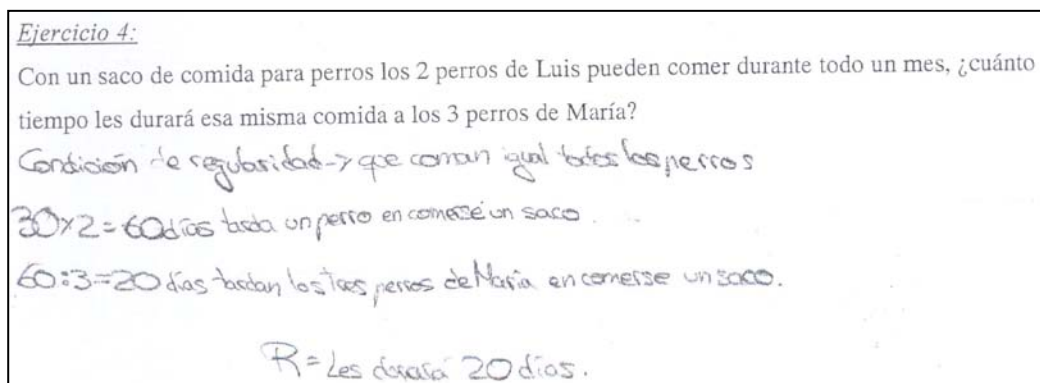 Ejercicio 4:
Con un saco de comida para perros los 2 perros de Luis pueden comer durante todo un mes, ¿cuánto
tiempo les durará esa misma comida a los 3 perros de María?
Condición de regularidad -> que coman igual todos los perros
30x2=60días tarda un perro en comerse un saco.
60:3=20 días tardan los tres perros de María en comerse un saco.
R= Les durará 20 días.